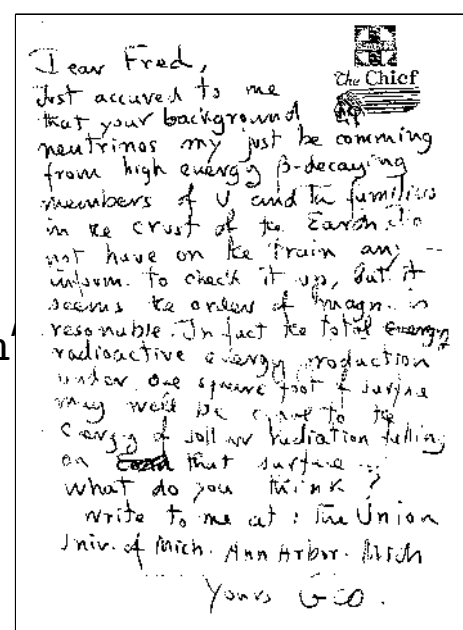 The Chief
Dear Fred,
Just accured to me
that your background
neutrinos my just be comming
from high energy β-decaying
members of U and Th families
in the crust of the Earth. do
not have on the train any
inform. to check it up, but it
seems the order of magn. is
resonable. In fact the total energy
radioactive energy production
under one square foot of surfase
may well be equal to the
energy of sollar radiation falling
on that surfase
what do you think ?
write to me at : The Union
Univ. of Mich. Ann Arbor. Mich
Yours GEO.